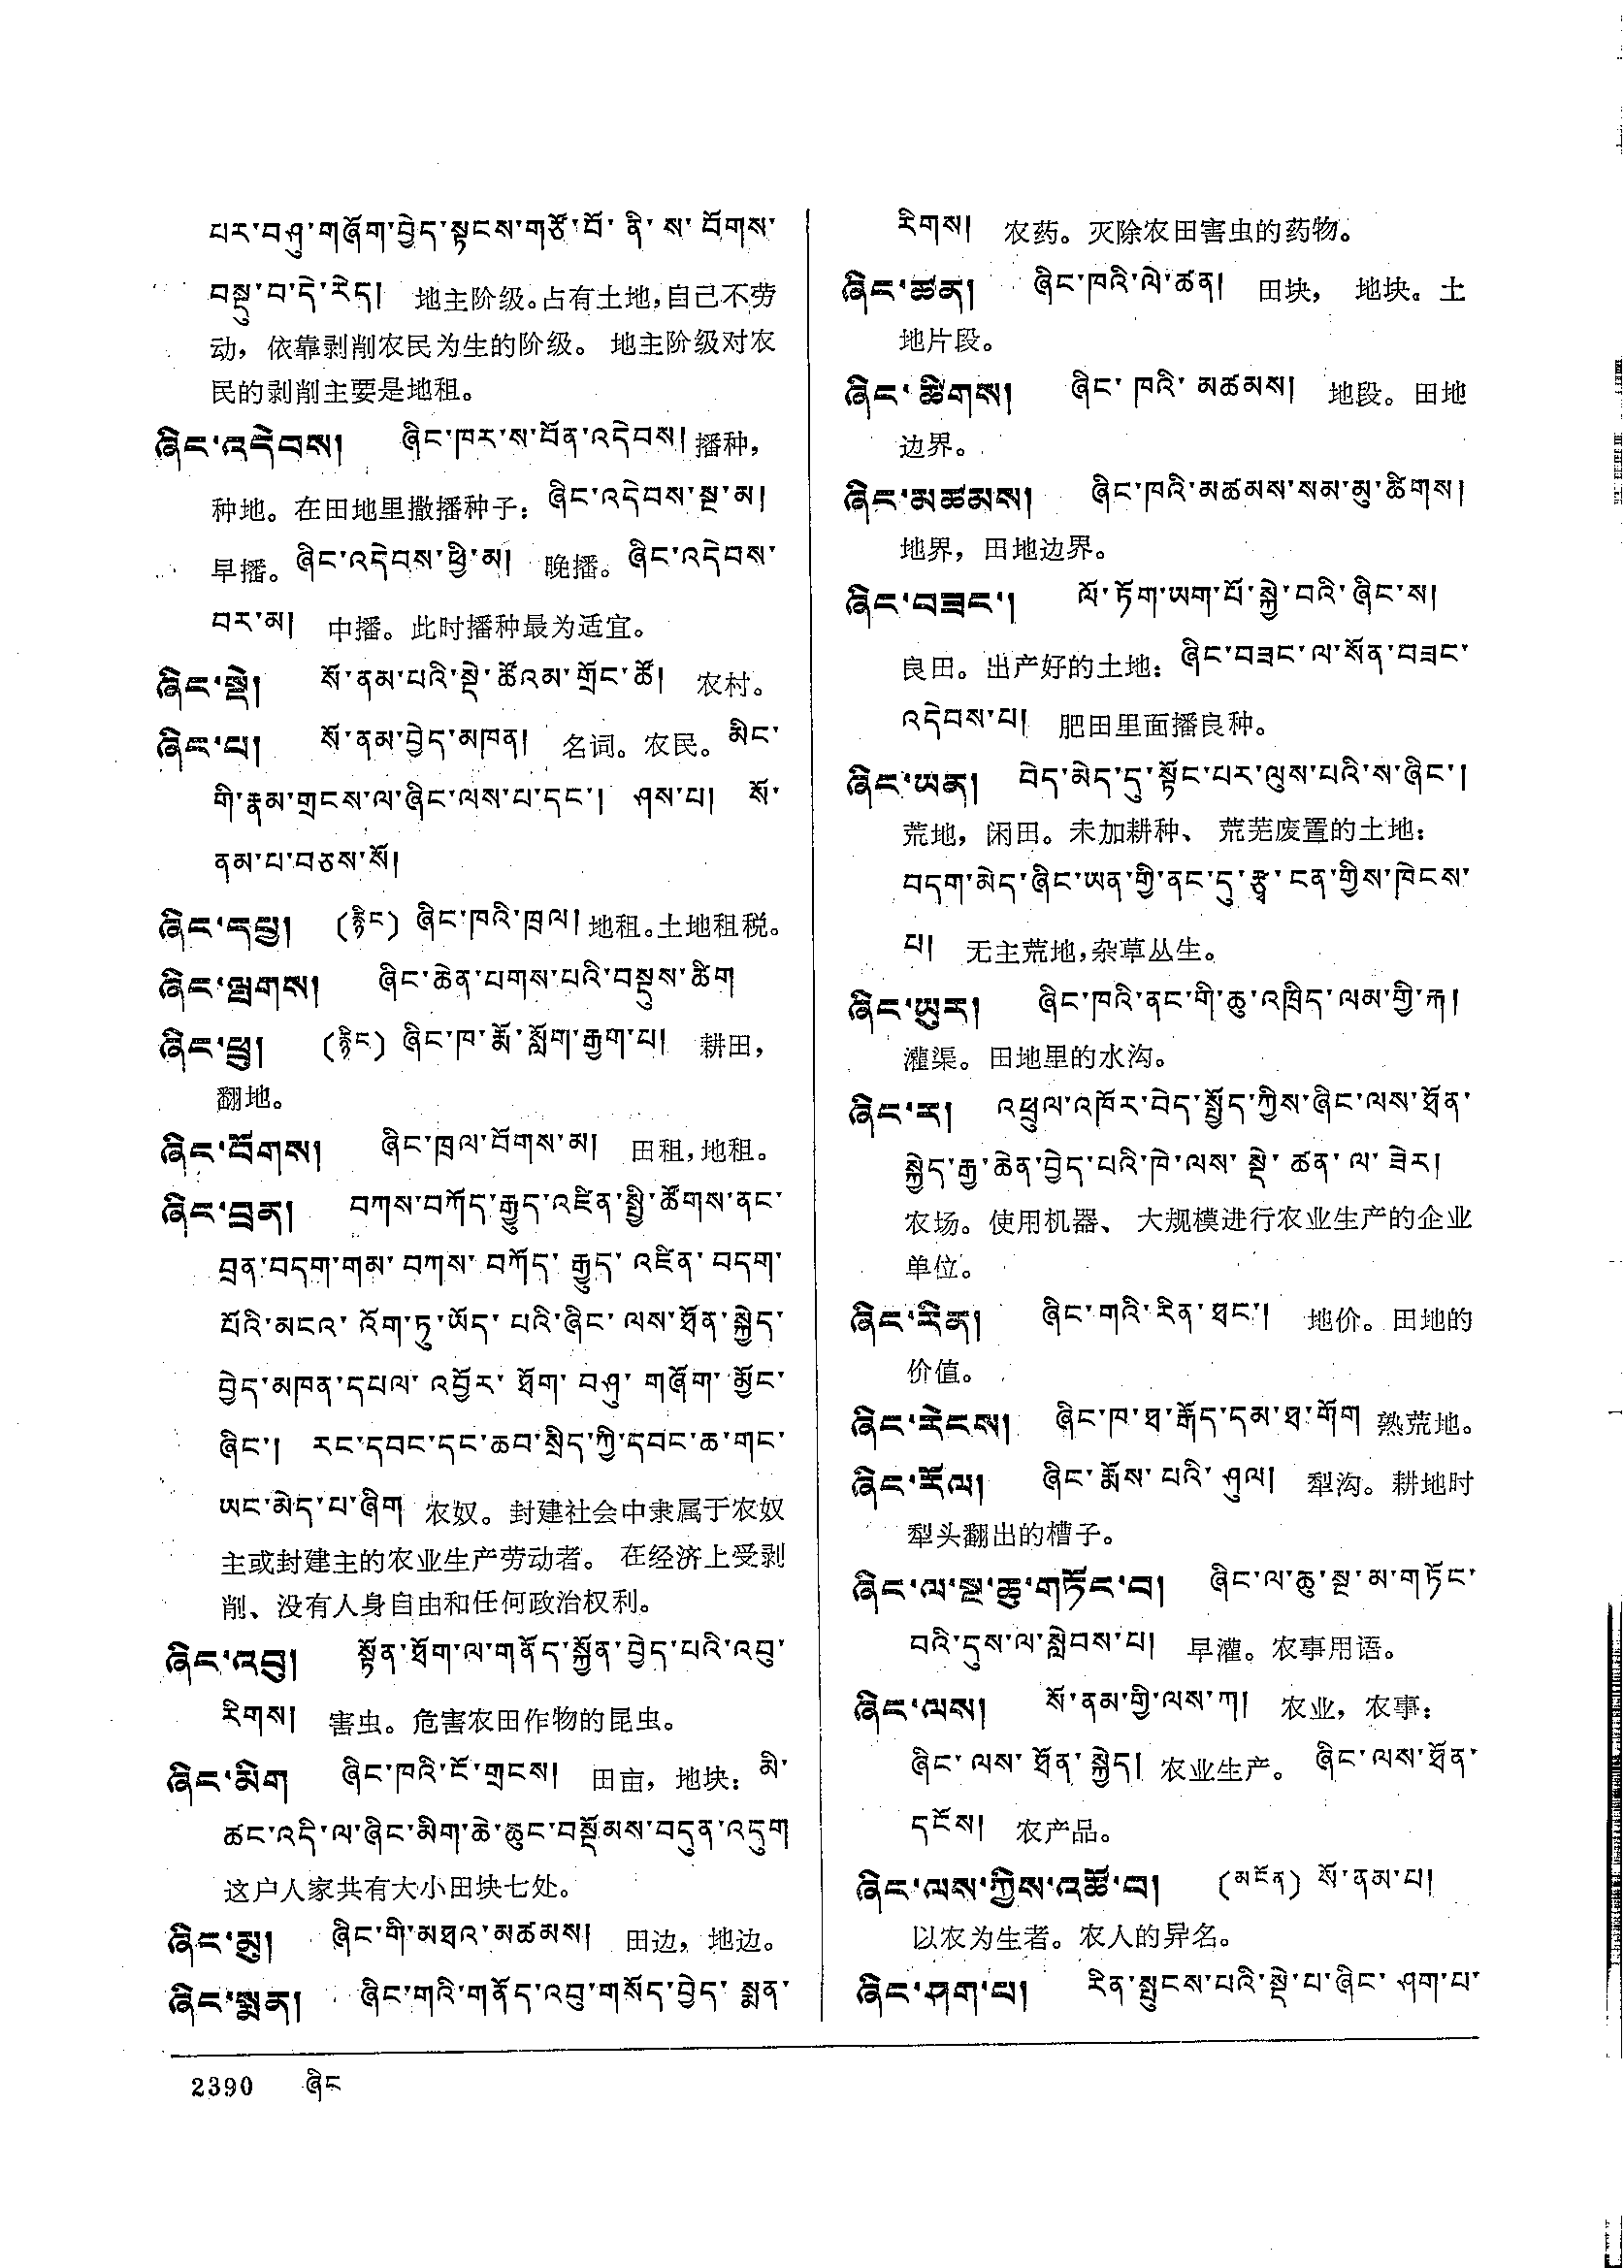 པར་བཤུ་གཞོག་བྱེད་སྟངས་གཙོ་བོ་ནི་ས་བོགས་
བསྡུ་བ་དེ་རེད། 地主阶级。占有土地,自己不劳
动，依靠剥削农民为生的阶级。 地主阶级对农
民的剥削主要是地租。
ཞིང་འདེབས། ཞིང་ཁར་ས་བོན་འདེབས། 播种，
种地。在田地里撒播种子： ཞིང་འདེབས་སྔ་མ།
早播。 ཞིང་འདེབས་ཕྱི་མ། 晚播。 ཞིང་འདེབས་
བར་མ། 中播。此时播种最为适宜。
ཞིང་སྡེ། སོ་ནམ་པའི་སྡེ་ཚོའམ་གྲོང་ཚོ། 农村。
ཞིང་པ། སོ་ནམ་བྱེད་མཁན། 名词。农民。 མིང་
གི་རྣམ་གྲངས་ལ་ཞིང་ལས་པ་དང་། ཤས་པ། སོ་
ནམ་པ་བཅས་སོ།
ཞིང་དཔྱ། (རྙིང) ཞིང་ཁའི་ཁྲལ། 地租。土地租税。
ཞིང་ལྤགས། ཞིང་ཆེན་པགས་པའི་བསྡུས་ཚིག
ཞིང་ཕྲུ། (རྙིང) ཞིང་ཁ་རྨོ་སློག་རྒྱག་པ། 耕田，
翻地。
ཞིང་བོགས། ཞིང་ཁྲལ་བོགས་མ། 田租,地租。
ཞིང་བྲན། བཀས་བཀོད་རྒྱུད་འཛིན་སྤྱི་ཚོགས་ནང་
བྲན་བདག་གམ་བཀས་བཀོད་རྒྱུད་འཛིན་བདག་
པོའི་མངའ་འོག་ཏུ་ཡོད་པའི་ཞིང་ལས་ཐོན་སྐྱེད་
བྱེད་མཁན་དཔལ་འབྱོར་ཐོག་བཤུ་གཞོག་མྱོང་
ཞིང་། རང་དབང་དང་ཆབ་སྲིད་ཀྱི་དབང་ཆ་གང་
ཡང་མེད་པ་ཞིག 农奴。封建社会中隶属于农奴
主或封建主的农业生产劳动者。 在经济上受剥
削、没有人身自由和任何政治权利。
ཞིང་འབུ། སྟོན་ཐོག་ལ་གནོད་སྐྱོན་བྱེད་པའི་འབུ་
རིགས། 害虫。危害农田作物的昆虫。
ཞིང་མིག ཞིང་ཁའི་ངོ་གྲངས། 田亩，地块： མི་
ཚང་འདི་ལ་ཞིང་མིག་ཆེ་ཆུང་བསྡོམས་བདུན་འདུག
这户人家共有大小田块七处。
ཞིང་མུ། ཞིང་གི་མཐའ་མཚམས། 田边，地边。
ཞིང་སྨན། ཞིང་གའི་གནོད་འབུ་གསོད་བྱེད་སྨན་
རིགས། 农药。灭除农田害虫的药物。
ཞིང་ཚན། ཞིང་ཁའི་ལེ་ཚན། 田块， 地块。土
地片段。
ཞིང་ཚིགས། ཞིང་ཁའི་མཚམས། 地段。田地
边界。
ཞིང་མཚམས། ཞིང་ཁའི་མཚམས་སམ་མུ་ཚིགས།
地界，田地边界。
ཞིང་བཟང་། ལོ་ཏོག་ཡག་པོ་སྐྱེ་བའི་ཞིང་ས།
良田。出产好的土地： ཞིང་བཟང་ལ་སོན་བཟང་
འདེབས་པ། 肥田里面播良种。
ཞིང་ཡན། བེད་མེད་དུ་སྟོང་པར་ལུས་པའི་ས་ཞིང་།
荒地，闲田。未加耕种、 荒芜废置的土地：
བདག་མེད་ཞིང་ཡན་གྱི་ནང་དུ་རྩྭ་ངན་གྱིས་ཁེངས་
པ། 无主荒地,杂草丛生。
ཞིང་ཡུར། ཞིང་ཁའི་ནང་གི་ཆུ་འཁྲིད་ལམ་གྱི་རྐ།
灌渠。田地里的水沟。
ཞིང་ར། འཕྲུལ་འཁོར་བེད་སྤྱོད་ཀྱིས་ཞིང་ལས་ཐོན་
སྐྱེད་རྒྱ་ཆེན་བྱེད་པའི་ཁེ་ལས་སྡེ་ཚན་ལ་ཟེར།
农场。使用机器、 大规模进行农业生产的企业
单位。
ཞིང་རིན། ཞིང་གའི་རིན་ཐང་། 地价。田地的
价值。
ཞིང་རེངས། ཞིང་ཁ་ཐ་རྒོད་དམ་ཐ་གོག 熟荒地。
ཞིང་རོལ། ཞིང་རྨོས་པའི་ཤུལ། 犁沟。耕地时
犁头翻出的槽子。
ཞིང་ལ་སྔ་ཆུ་གཏོང་བ། ཞིང་ལ་ཆུ་སྔ་མ་གཏོང་
བའི་དུས་ལ་སླེབས་པ། 早灌。农事用语。
ཞིང་ལས། སོ་ནམ་གྱི་ལས་ཀ། 农业，农事：
ཞིང་ལས་ཐོན་སྐྱེད། 农业生产。 ཞིང་ལས་ཐོན་
དངོས། 农产品。
ཞིང་ལས་ཀྱིས་འཚོ་བ། (མངོན) སོ་ནམ་པ།
以农为生者。农人的异名。
ཞིང་ཤག་པ། རིན་སྤུངས་པའི་སྡེ་པ་ཞིང་ཤག་པ་
2390 ཞིང